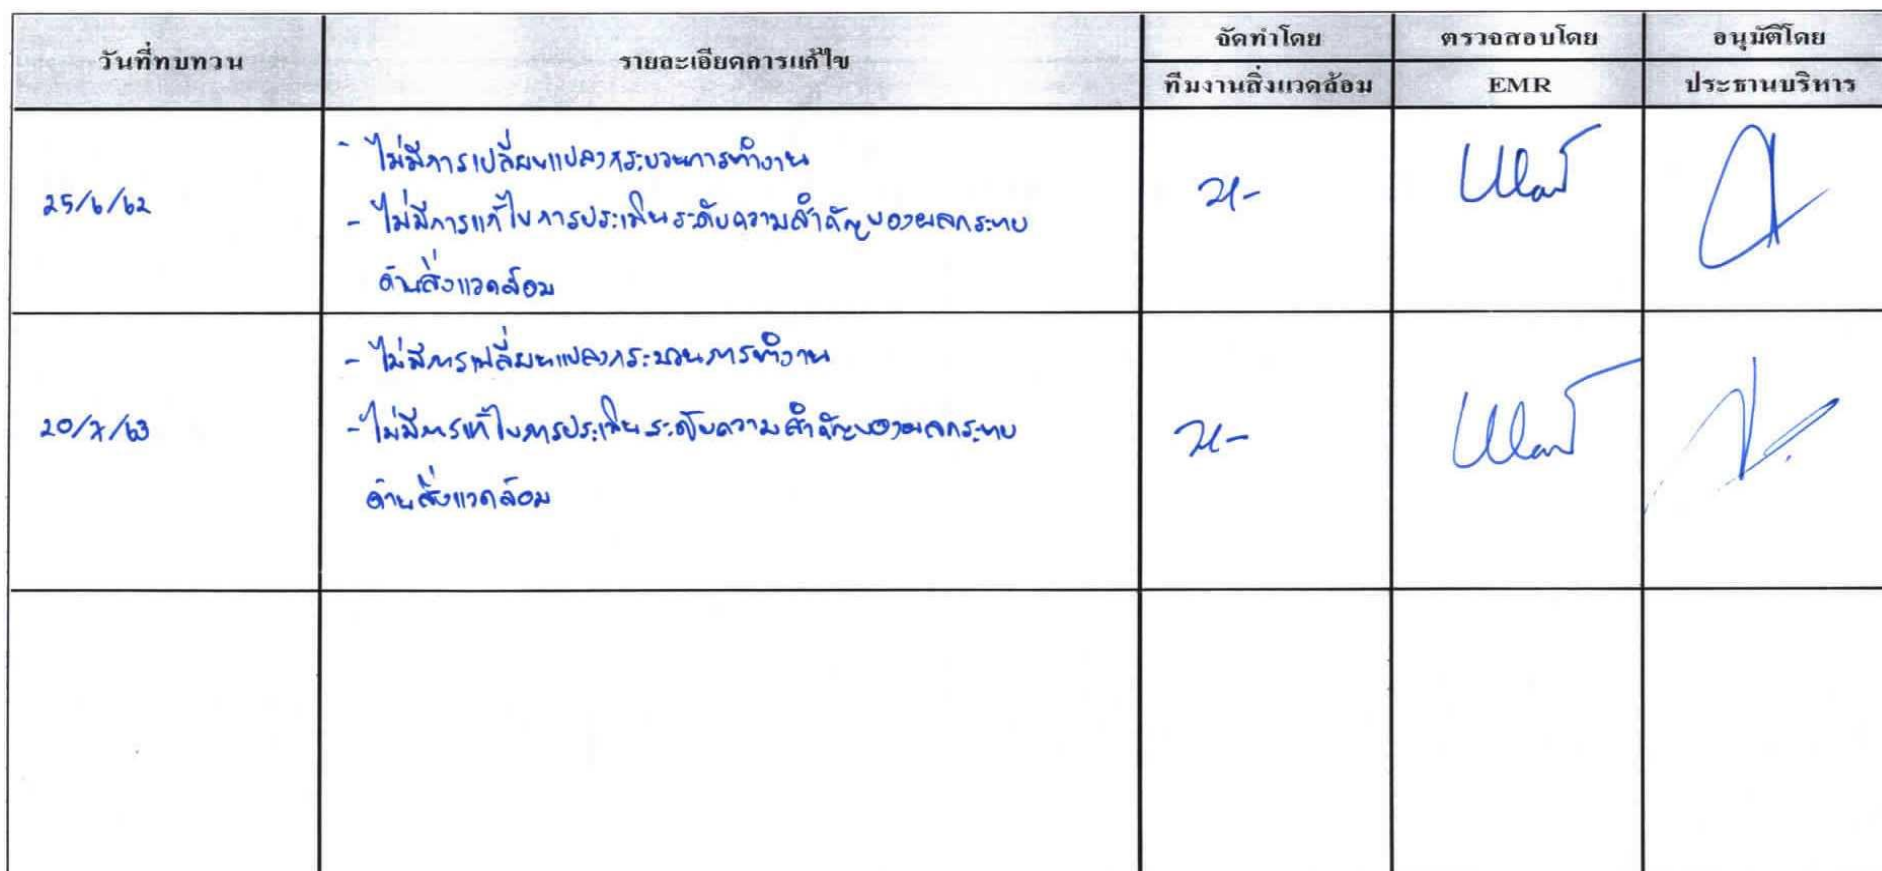 วันที่ทบทวน รายละเอียดการแก้ไข จัดทำโดย ตรวจสอบโดย อนุมัติโดย
ทีมงานสิ่งแวดล้อม EMR ประธานบริหาร
- ไม่มีการเปลี่ยนแปลงกระบวนการทำงาน
25/6/62
- ไม่มีการแก้ไขการประเมินระดับความสำคัญของผลกระทบ
ด้านสิ่งแวดล้อม
- ไม่มีการเปลี่ยนแปลงกระบวนการทำงาน
20/7/63
- ไม่มีการแก้ไขการประเมินระดับความสำคัญของผลกระทบ
ด้านสิ่งแวดล้อม